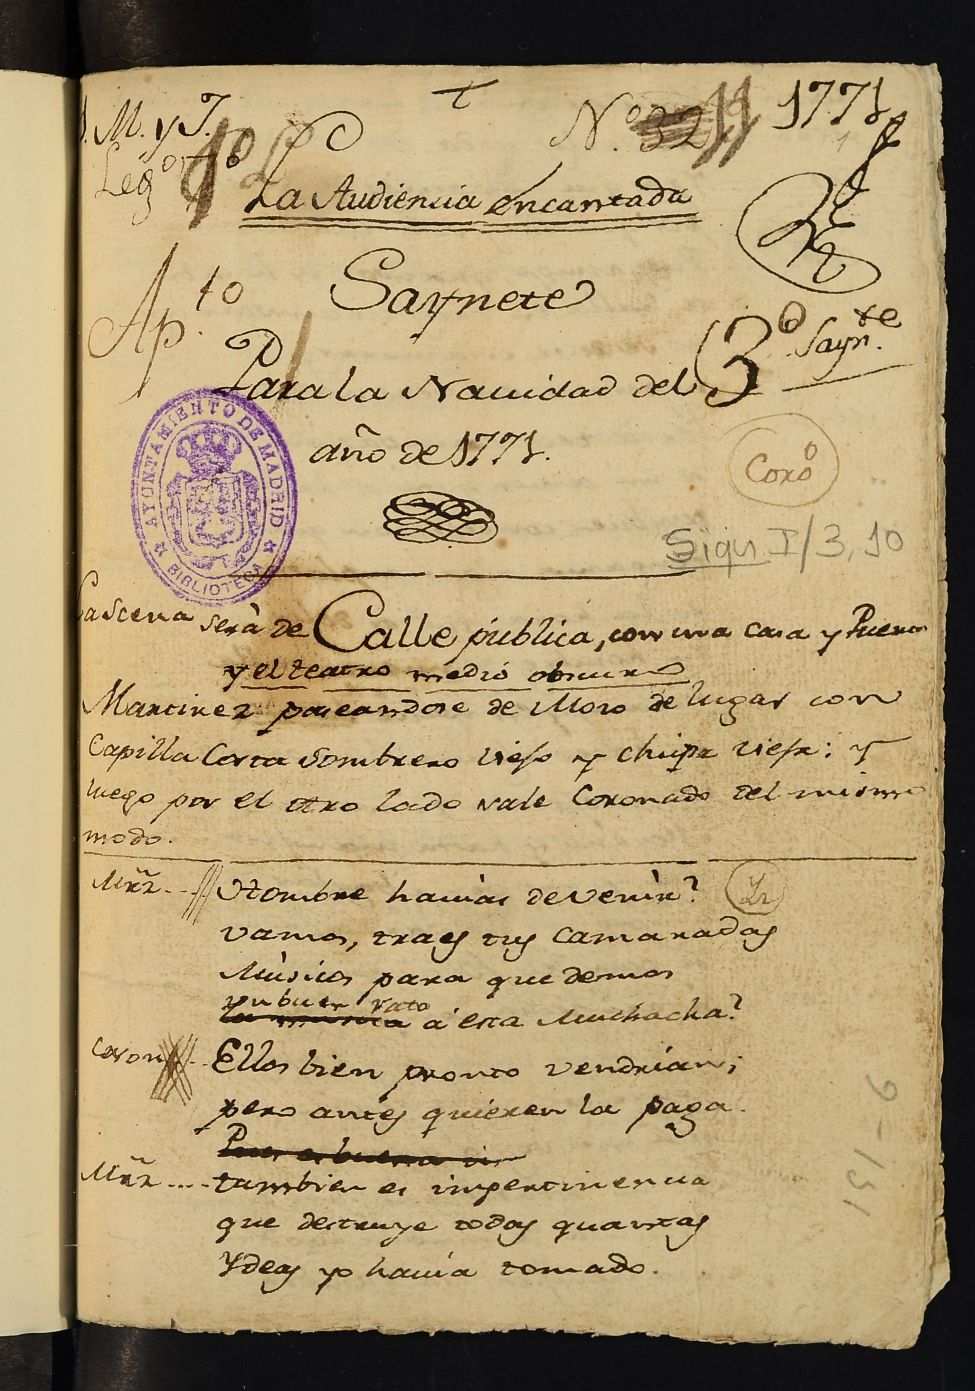 J. M. y J.
Nº 32 11 1771
Legº 1º
La Audiencia encantada
Ap.to
Saynete
3º Sayn.te
Para la Navidad del
año de 1771.
AYUNTAMIENTO DE MADRID
BIBLIOTECA
Coroº
Sign I/3, 10
La Scena será de Calle publica, con una casa y Puerta
y el teatro medio obscuro
Martinez paseandose de Mozo de lugar con
Capilla Corta Sombrero viejo y chupa vieja: y
luego por el otro lado sale Coronado del mismo
modo.
Mrz... Hombre havias de venir?
vamos, traes tus camaradas
Músicos para que demos
un buen rato
la musica a esta Muchacha?
Coron... Ellos bien pronto vendrian;
pero antes quieren la paga.
Pues es buena
Mrz.... tambien es impertinencia
que destruye todas quantas
Ydeas yo havia tomado.
9-131